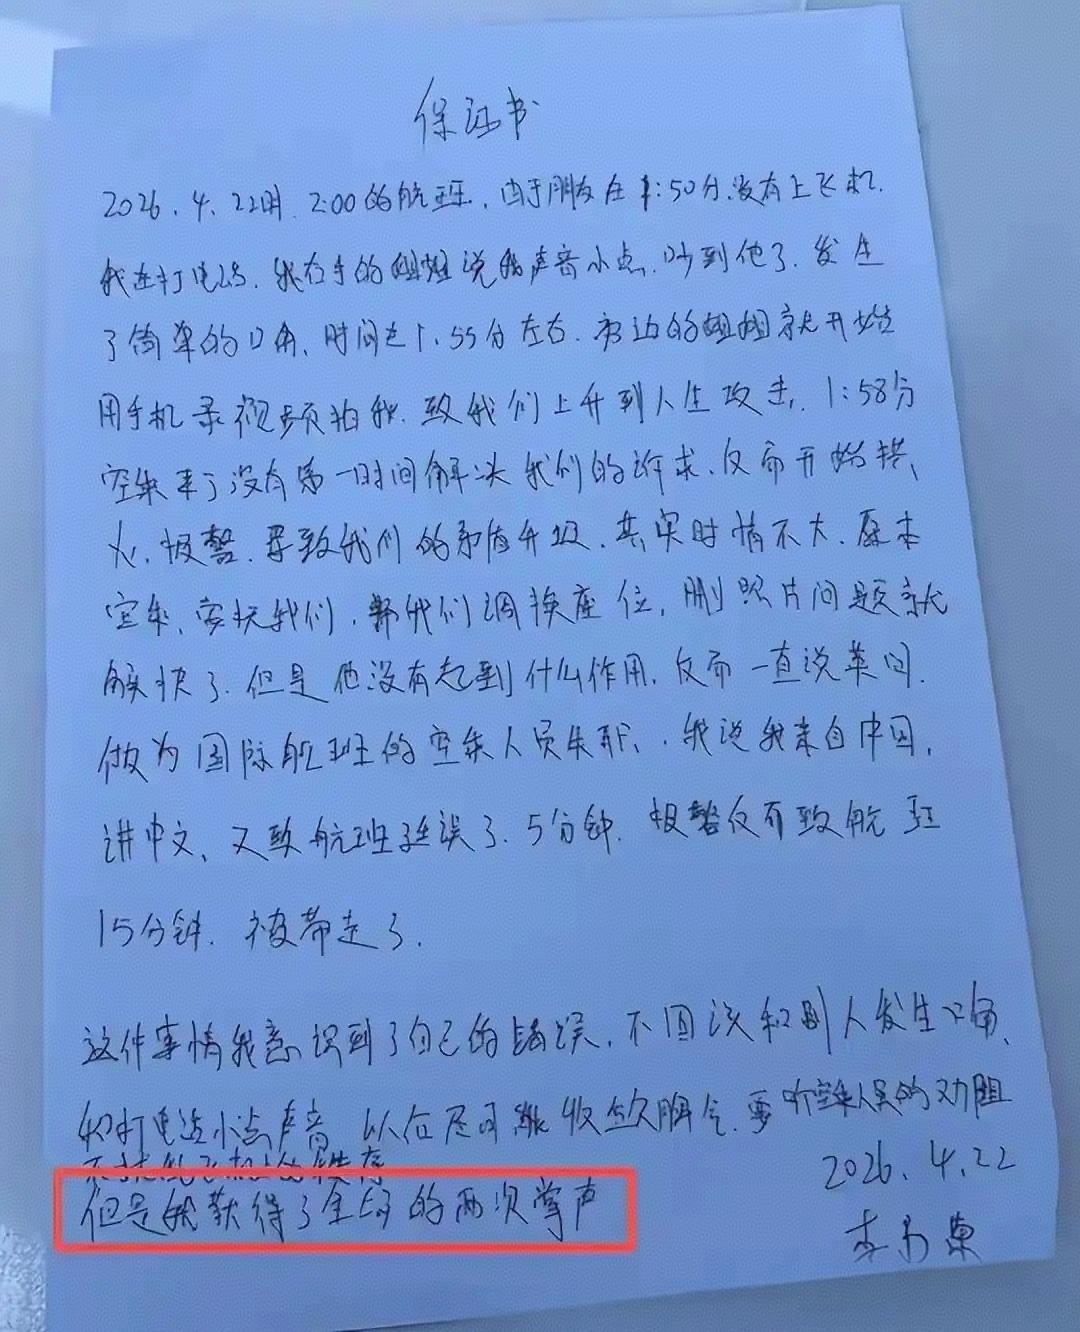 保证书
2026.4.22日.2:00的航班,由于朋友在1:50分.没有上飞机.
我在打电话.我右手的姐姐说我声音小点.吵到他了.发生
了简单的口角,时间是1.55分左右.旁边的姐姐就开始
用手机录视频拍我.致我们上升到人生攻击,1:58分
空乘来了没有第一时间解决我们的诉求.反而开始拱
火.报警.导致我们的矛盾升级.其实时情不大.原本
空乘,安抚我们,帮我们调换座位,删照片问题就
解决了.但是他没有起到什么作用,反而一直说英
做为国际航班的空乘人员失职,我说我来自中国,
讲中文、又致航班延误了.5分钟.报警反而致航班
15分钟.被带走了.
这件事情我意识到了自己的错误,不因该和别人发生口角,
和打电话小点声音.以后尽可能收敛脾气.要听空乘人员的劝阻
2026.4.22
但是我获得了全场的两次掌声
李